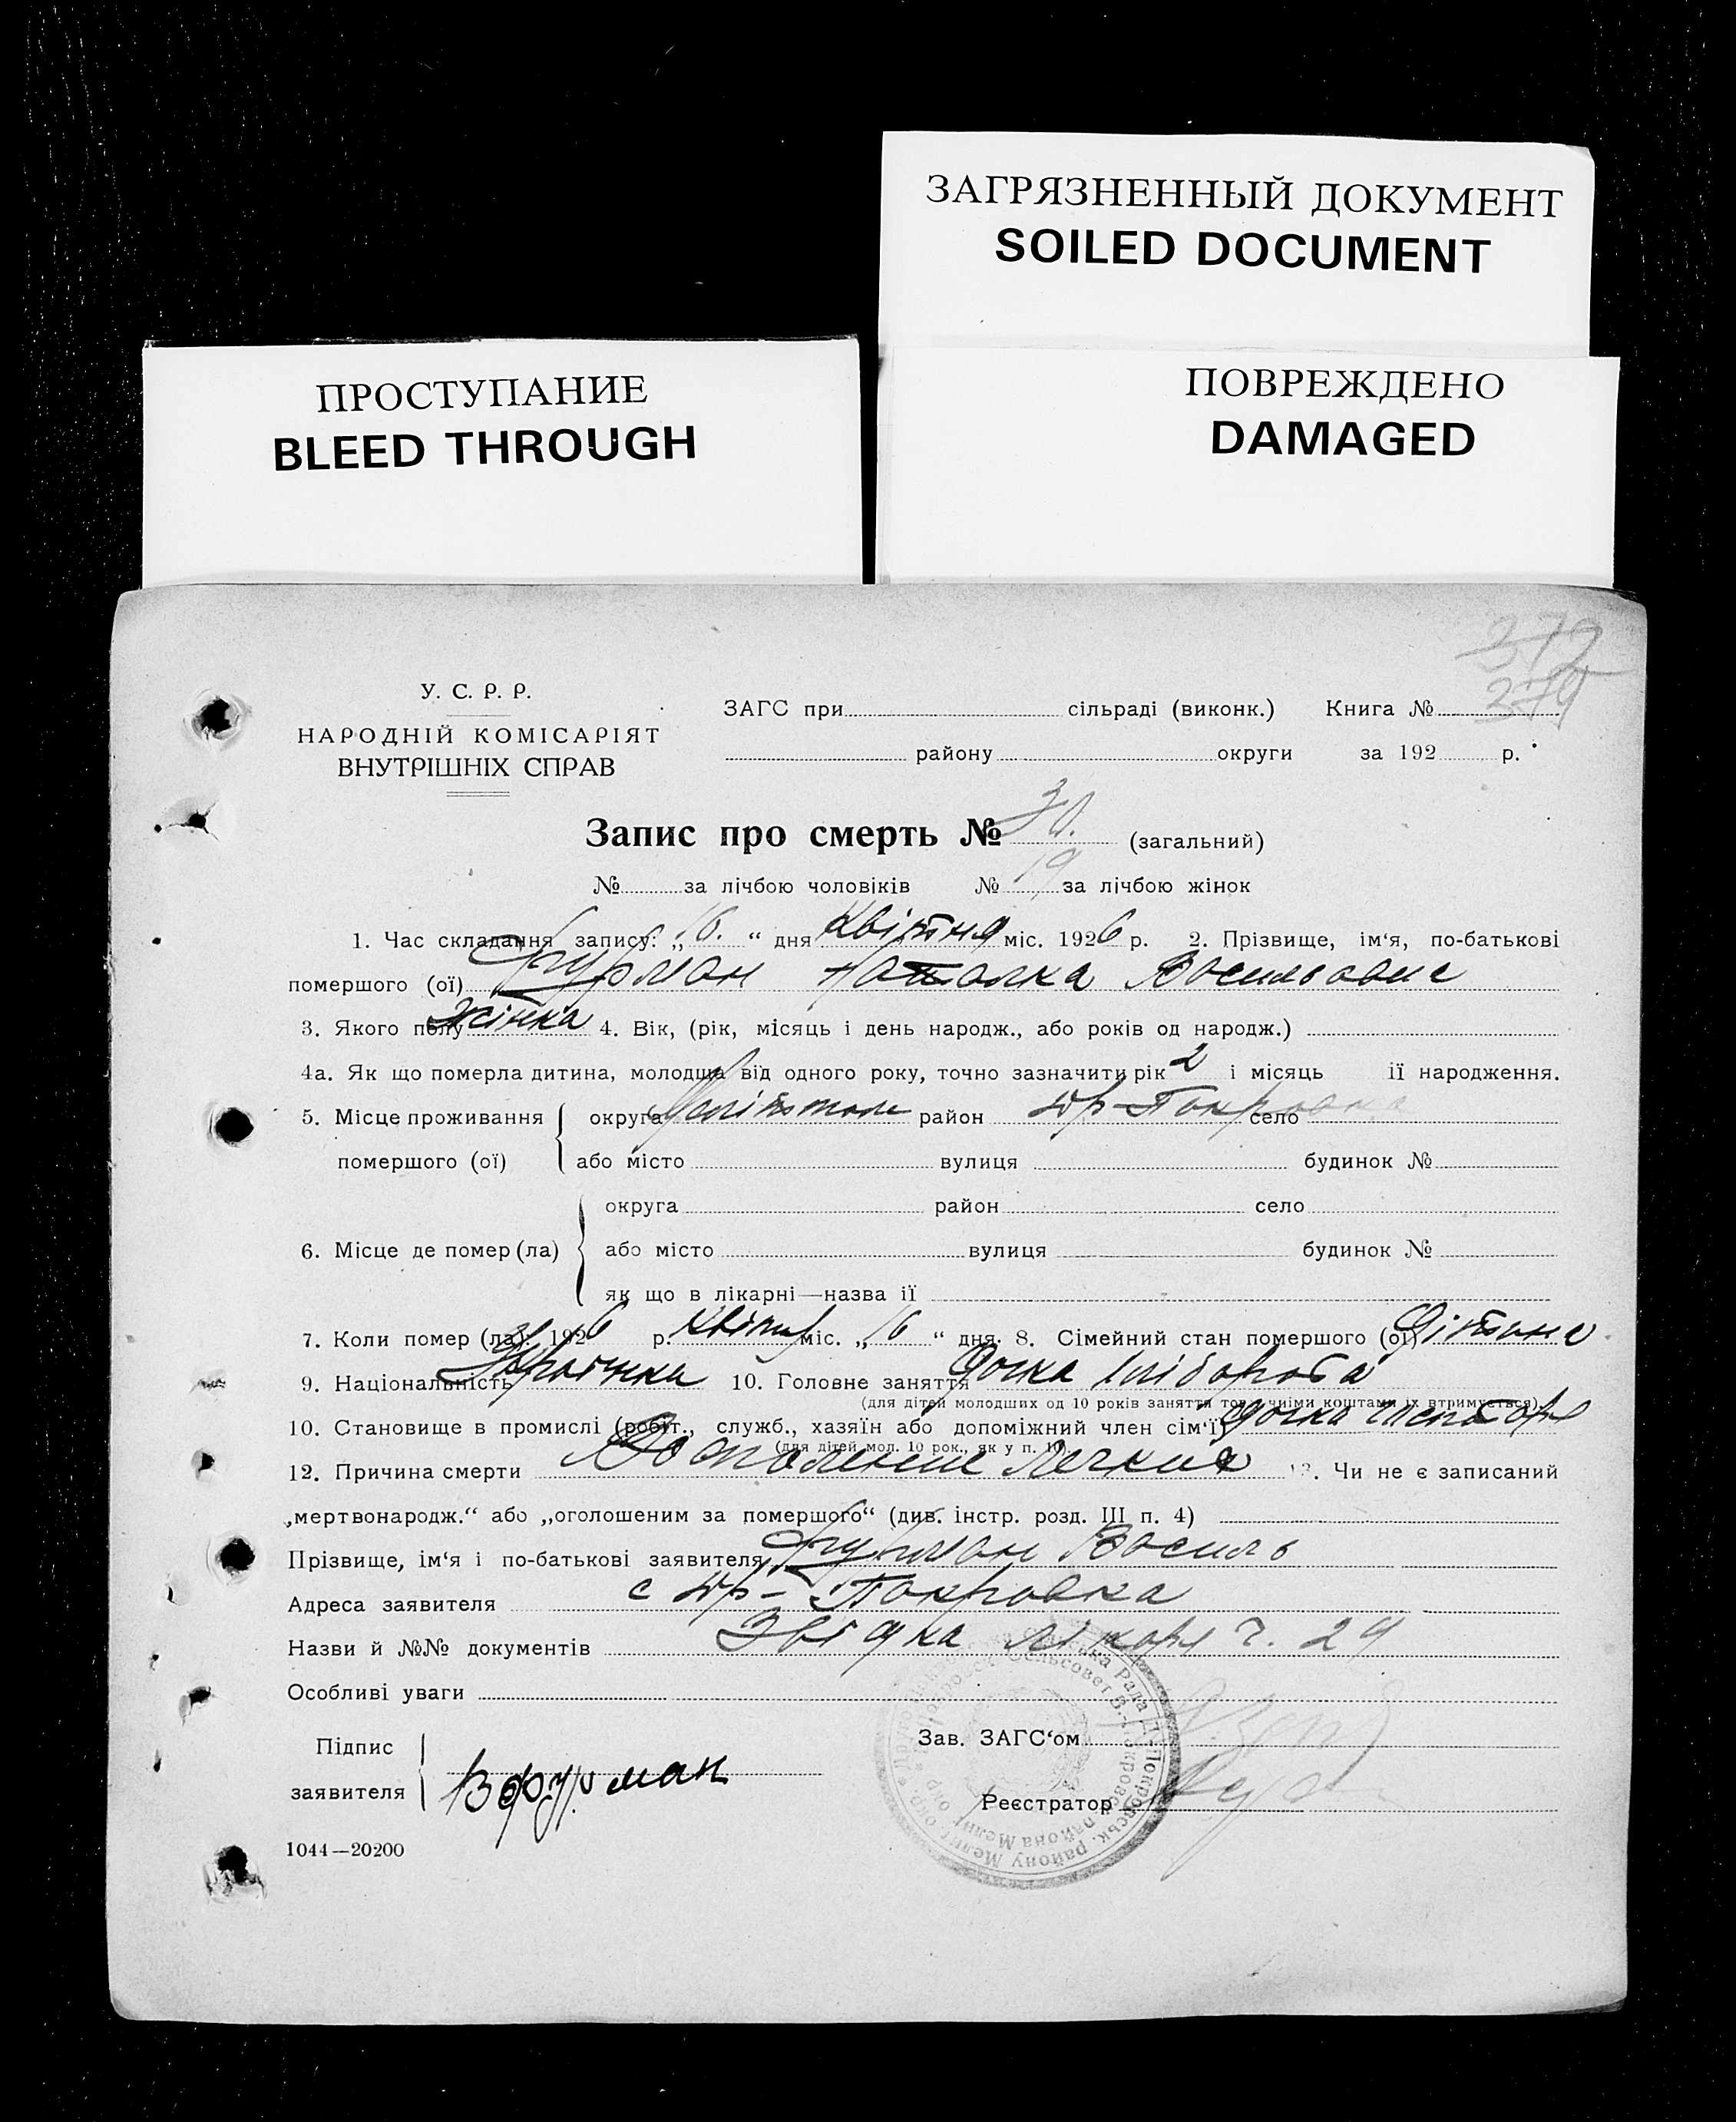 ЗАГРЯЗНЕННЫЙ ДОКУМЕНТ
SOILED DOCUMENT
ПРОСТУПАНИЕ
BLEED THROUGH
ПОВРЕЖДЕНО
DAMAGED
372
379
У. С. Р. Р.
НАРОДНІЙ КОМІСАРІЯТ
ВНУТРІШНІХ СПРАВ
ЗАГС при сільраді (виконк.) Книга №
району округи за 192 р.
Запис про смерть № 30. (загальний)
№ за лічбою чоловіків № 19 за лічбою жінок
1. Час складання запису: „16.“ дня Квітня міс. 1926 р. 2. Прізвище, ім‘я, по-батькові
помершого (ої) Фурман Наталка Васильовна
3. Якого полу Жінка 4. Вік, (рік, місяць і день народж., або років од народж.)
4а. Як що померла дитина, молодша від одного року, точно зазначити рік 2 і місяць її народження.
5. Місце проживання округа район Др-Покровка село
помершого (ої) або місто вулиця будинок №
округа район село
6. Місце де помер (ла) або місто вулиця будинок №
як що в лікарні—назва її
7. Коли помер (ла): 1926 р. міс. „16“ дня. 8. Сімейний стан помершого (ої) Дітина
9. Національність Українка 10. Головне заняття Дочка хлібороба
(для дітей молодших од 10 років заняття тор чиїми коштами їх втримується)
10. Становище в промислі (робіт., служб., хазяїн або допоміжний член сім‘ї) дочка
(для дітей мол. 10 рок., як у п. 10).
12. Причина смерти Воспаление Легких 13. Чи не є записаний
„мертвонародж.“ або „оголошеним за помершого“ (див. інстр. розд. III п. 4)
Прізвище, ім‘я і по-батькові заявителя Фурман Василь
Адреса заявителя с Др-Покровка
Назви й №№ документів Звідка лікаря ч. 29
Особливі уваги
Підпис
заявителя В Фурман
Зав. ЗАГС‘ом
Реєстратор
1044—20200